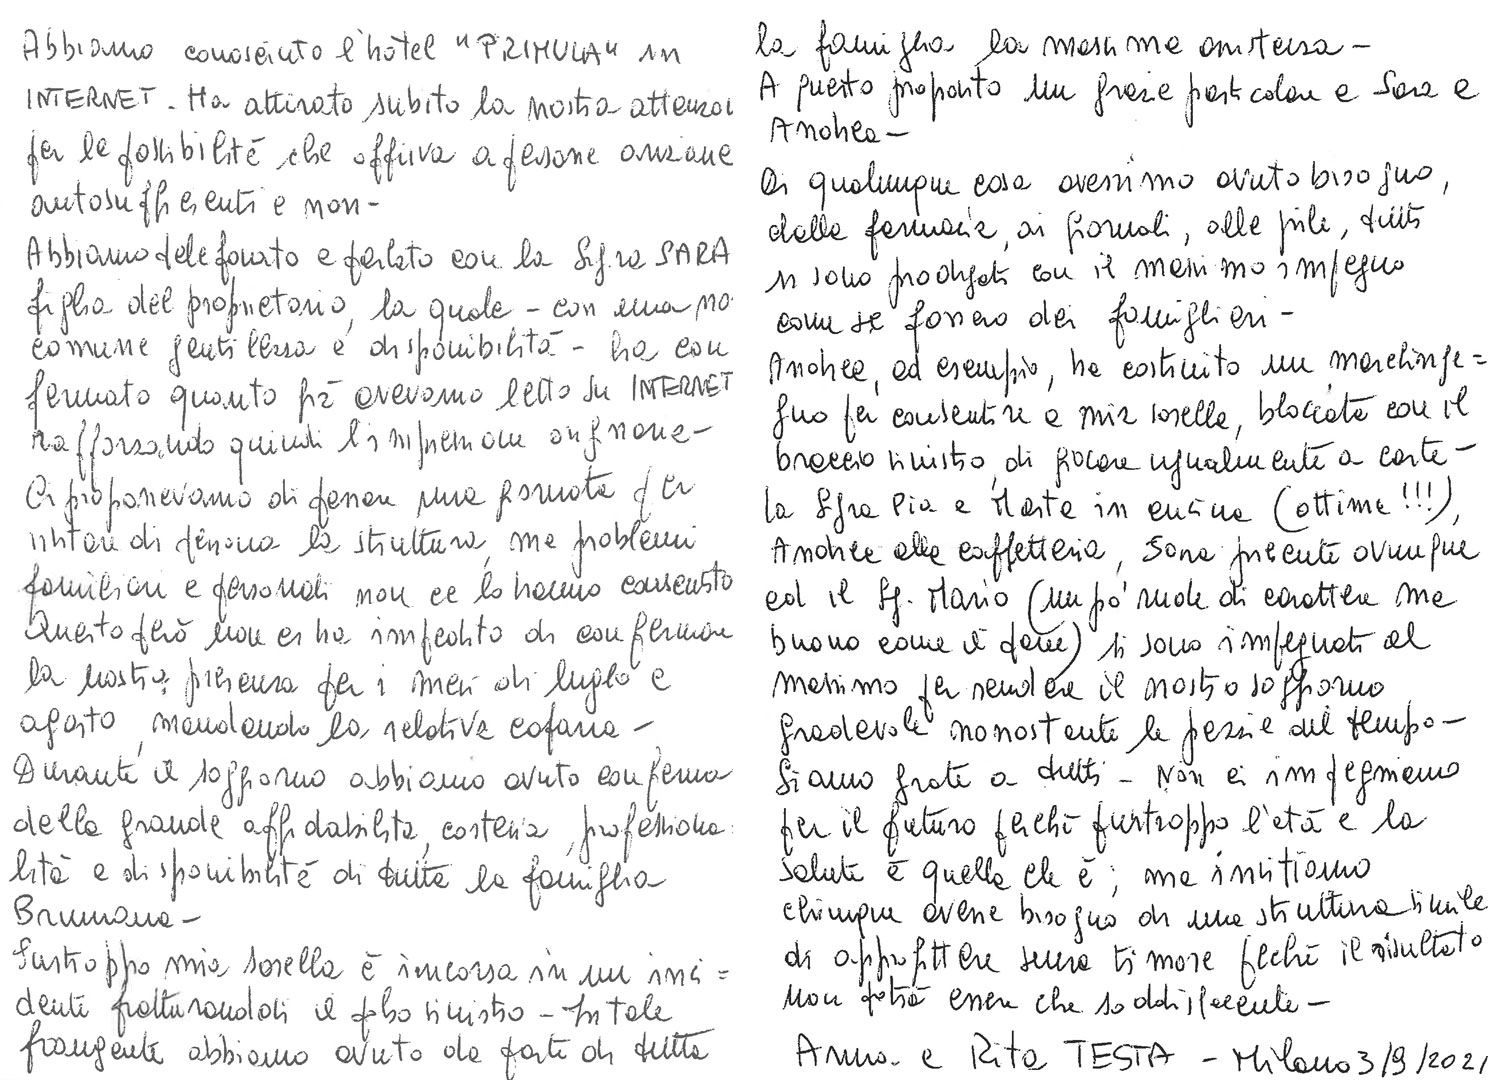 Abbiamo conosciuto l'hotel "PRIMULA" in
INTERNET. Ha attirato subito la nostra attenzio
per le possibilità che offriva a persone anziane
autosufficienti e non -
Abbiamo telefonato e parlato con la Sig.ra SARA
figlia del proprietario, la quale - con una no
comune gentilezza e disponibilità - ha con
fermato quanto già avevamo letto su INTERNET
rafforzando quindi l'impressione originaria -
Ci proponevamo di passare una giornata per
visitare di persona la struttura, ma problemi
familiari e personali non ce lo hanno consentito
Questo però non ci ha impedito di confermare
la nostra presenza per i mesi di luglio e
agosto, mandando la relativa caparra -
Durante il soggiorno abbiamo avuto conferma
della grande affidabilità, cortesia, professiona
lità e disponibilità di tutta la famiglia
Brumana -
Purtroppo mia sorella è incorsa in un inci =
dente fratturandosi il polso sinistro - In tale
frangente abbiamo avuto da parte di tutta
la famiglia la massima assistenza -
A questo proposito un grazie particolare a Sara e
Andrea -
Di qualunque cosa avessimo avuto bisogno,
dalla farmacia, ai giornali, alle pile, tutti
si sono prodigati con il massimo impegno
come se fossero dei famigliari -
Andrea, ad esempio, ha costruito un marchinge =
gno per consentire a mia sorella, bloccata con il
braccio sinistro, di giocare ugualmente a carte -
la Sig.ra Pia e Marta in cucina (ottima !!!),
Andrea alla caffetteria, Sara presente ovunque
ed il Sig. Mario (un pò rude di carattere ma
buono come il pane) si sono impegnati al
massimo per rendere il nostro soggiorno
gradevole nonostante le pazzie del tempo -
Siamo grate a tutti - Non ci impegniamo
per il futuro perchè purtroppo l'età e la
salute è quella che è; ma invitiamo
chiunque avesse bisogno di una struttura simile
di approfittare senza timore perchè il risultato
non potrà essere che soddisfacente -
Anna e Rita TESTA - Milano 3/9/2021